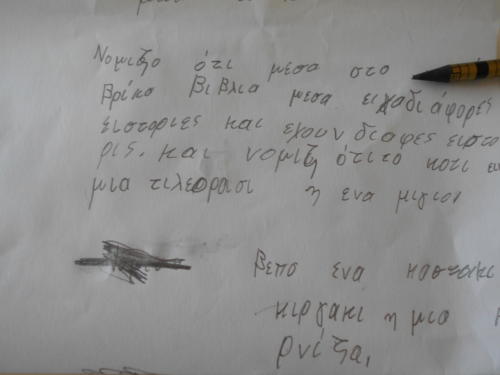 Νομιζο ότι μεσα στο
βρίκο βιβλια μεσα ειχαδιάφορες
ειστοριες και εχουν διαφες ειστο
ρις. και νομιζ ότι το κοτι
μια τιλεορασι η ενα μιγιον
βεπο ενα καστρακι
κιργακι η μια
ρνίζα,